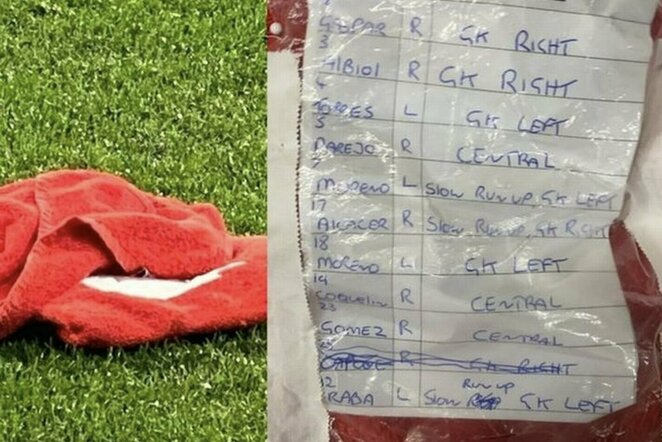 2
GASPAR R GK RIGHT
3
AlBIOl R GK RIGHT
4
TORRES L GK LEFT
5
PAREJO R CENTRAL
7
MORENO L Slow RUN UP GK LEFT
17
AlCACER R Slow Run up GK RIGHT
18
MORENO L GK LEFT
19
COQUELIN R CENTRAL
23
GOMEZ R CENTRAL
25
CAPOUE R GK RIGHT
12 RUN UP
RABA L Slow GK LEFT